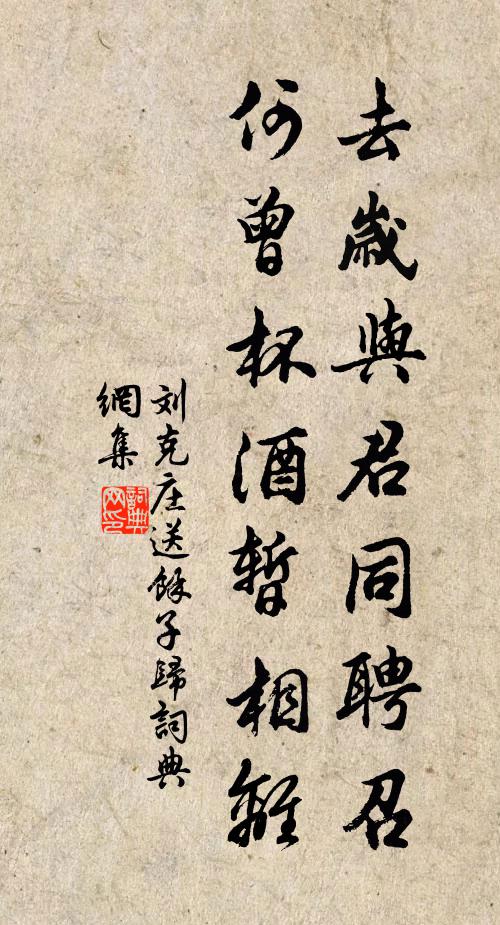 去歲與君同聘召
何曾杯酒暫相離
刘克庄送餘子歸詞典
網集
詞典
网印